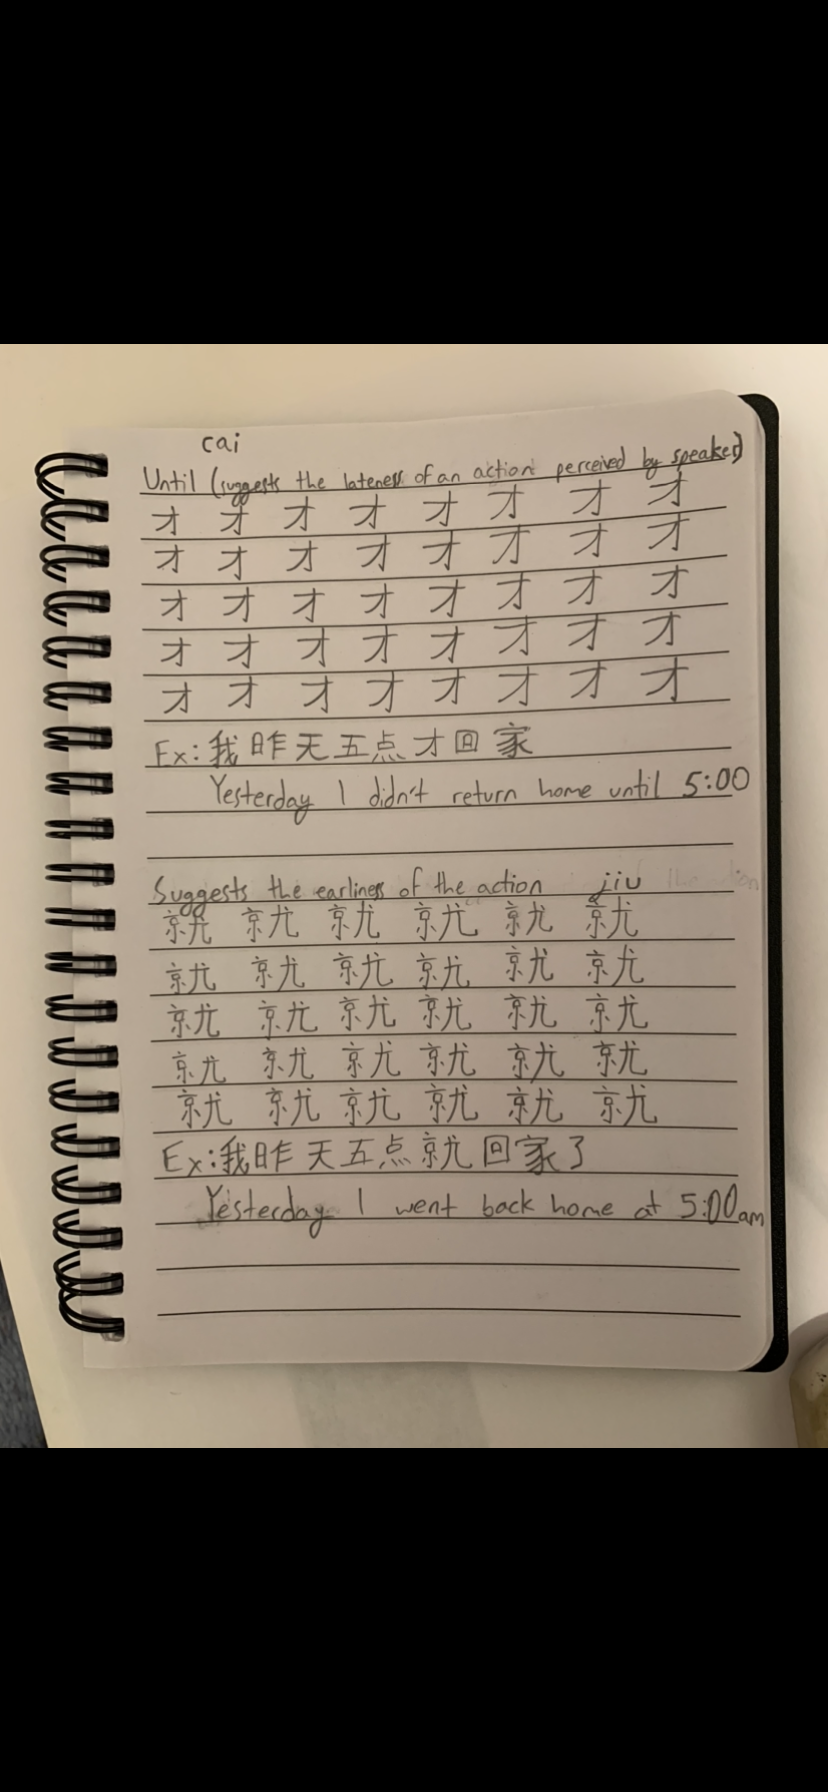 cai
Until (suggests the lateness of an action perceived by speaker)
才 才 才 才 才 才 才 才
才 才 才 才 才 才 才 才
才 才 才 才 才 才 才 才
才 才 才 才 才 才 才 才
才 才 才 才 才 才 才 才
Ex: 我昨天五点才回家
Yesterday I didn't return home until 5:00
Suggests the earliness of the action jiu
就 就 就 就 就 就
就 就 就 就 就 就
就 就 就 就 就 就
就 就 就 就 就 就
就 就 就 就 就 就
Ex: 我昨天五点就回家了
Yesterday I went back home at 5:00am